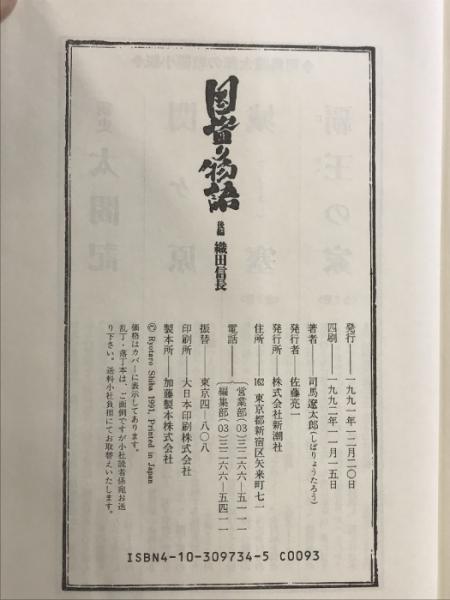 国盗り物語
後編 織田信長
発行――一九九一年一二月二〇日
四刷――一九九二年一一月一五日
著者――司馬遼太郎(しばりょうたろう)
発行者――佐藤亮一
発行所――株式会社新潮社
住所――162 東京都新宿区矢来町七一
電話――営業部(03)三二六六―五一一一
編集部(03)三二六六―五四一一
振替――東京四―八〇八
印刷所――大日本印刷株式会社
製本所――加藤製本株式会社
© Ryotaro Shiba 1991, Printed in Japan
価格はカバーに表示してあります。
乱丁・落丁本は、ご面倒ですが小社読者係宛お送
り下さい。送料小社負担にてお取替えいたします。
ISBN4-10-309734-5 C0093
覇王の家
城塞
関ヶ原
新史 太閤記